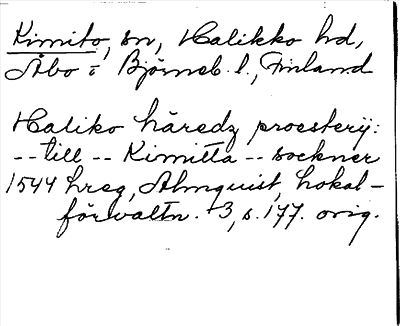 Kimito, sn, Halikko hd,
Åbo o Björneb. l., Finland
Haliko häredz proesterij:
-- till -- Kimitta -- sockner
1544 hreg, Almquist, Lokal-
förvaltn. +3, s. 177. orig.